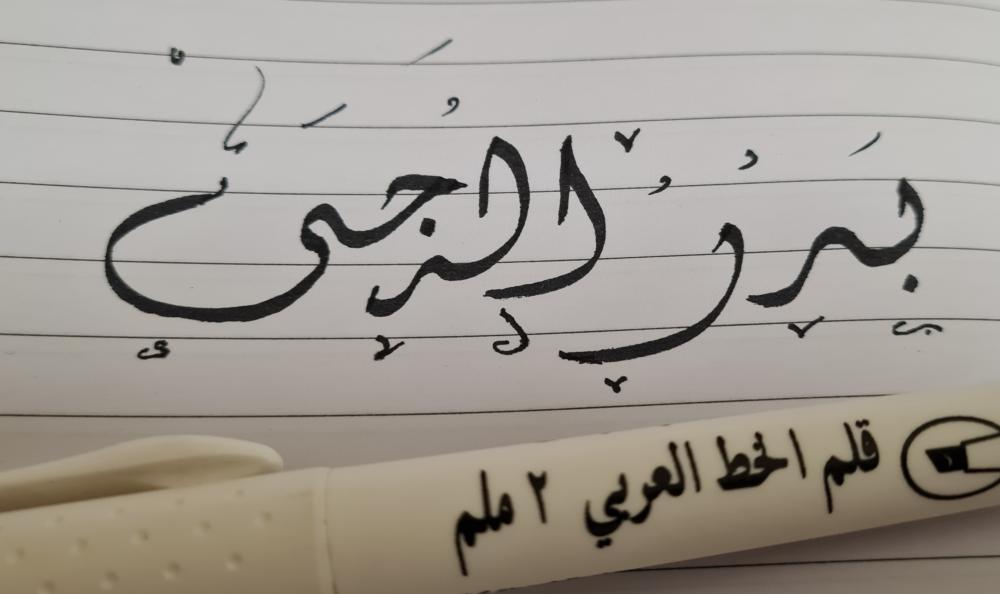 بَدرُ الدُّجَى
قلم الخط العربي ٢ ملم